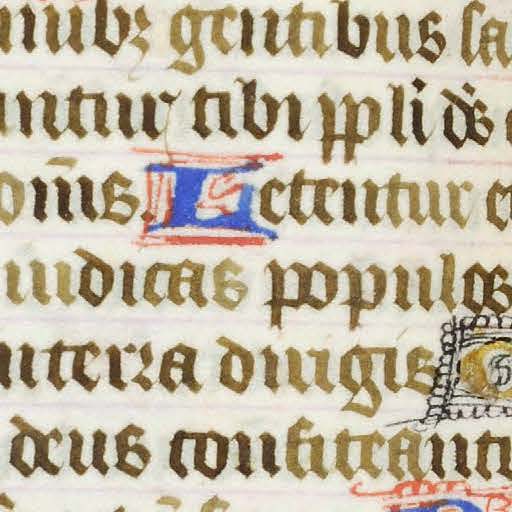 nnibꝫ gentibus sa
untur tibi ppli ds
om̄s. Letentur et
iudicas populos
in terra dirigis
deus confiteantu